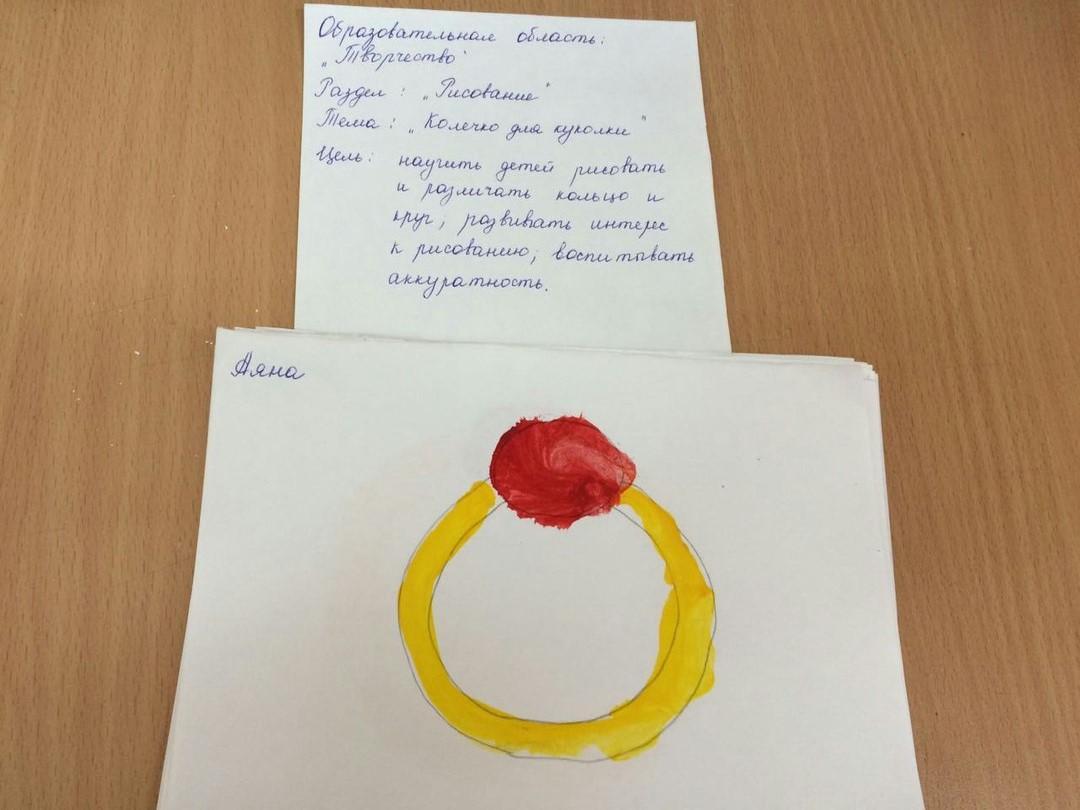 Образовательная область:
„Творчество"
Раздел: „Рисование"
Тема: „Колечко для куколки"
Цель: научить детей рисовать
и различать кольцо и
круг; развивать интерес
к рисованию; воспитывать
аккуратность.
Аяна